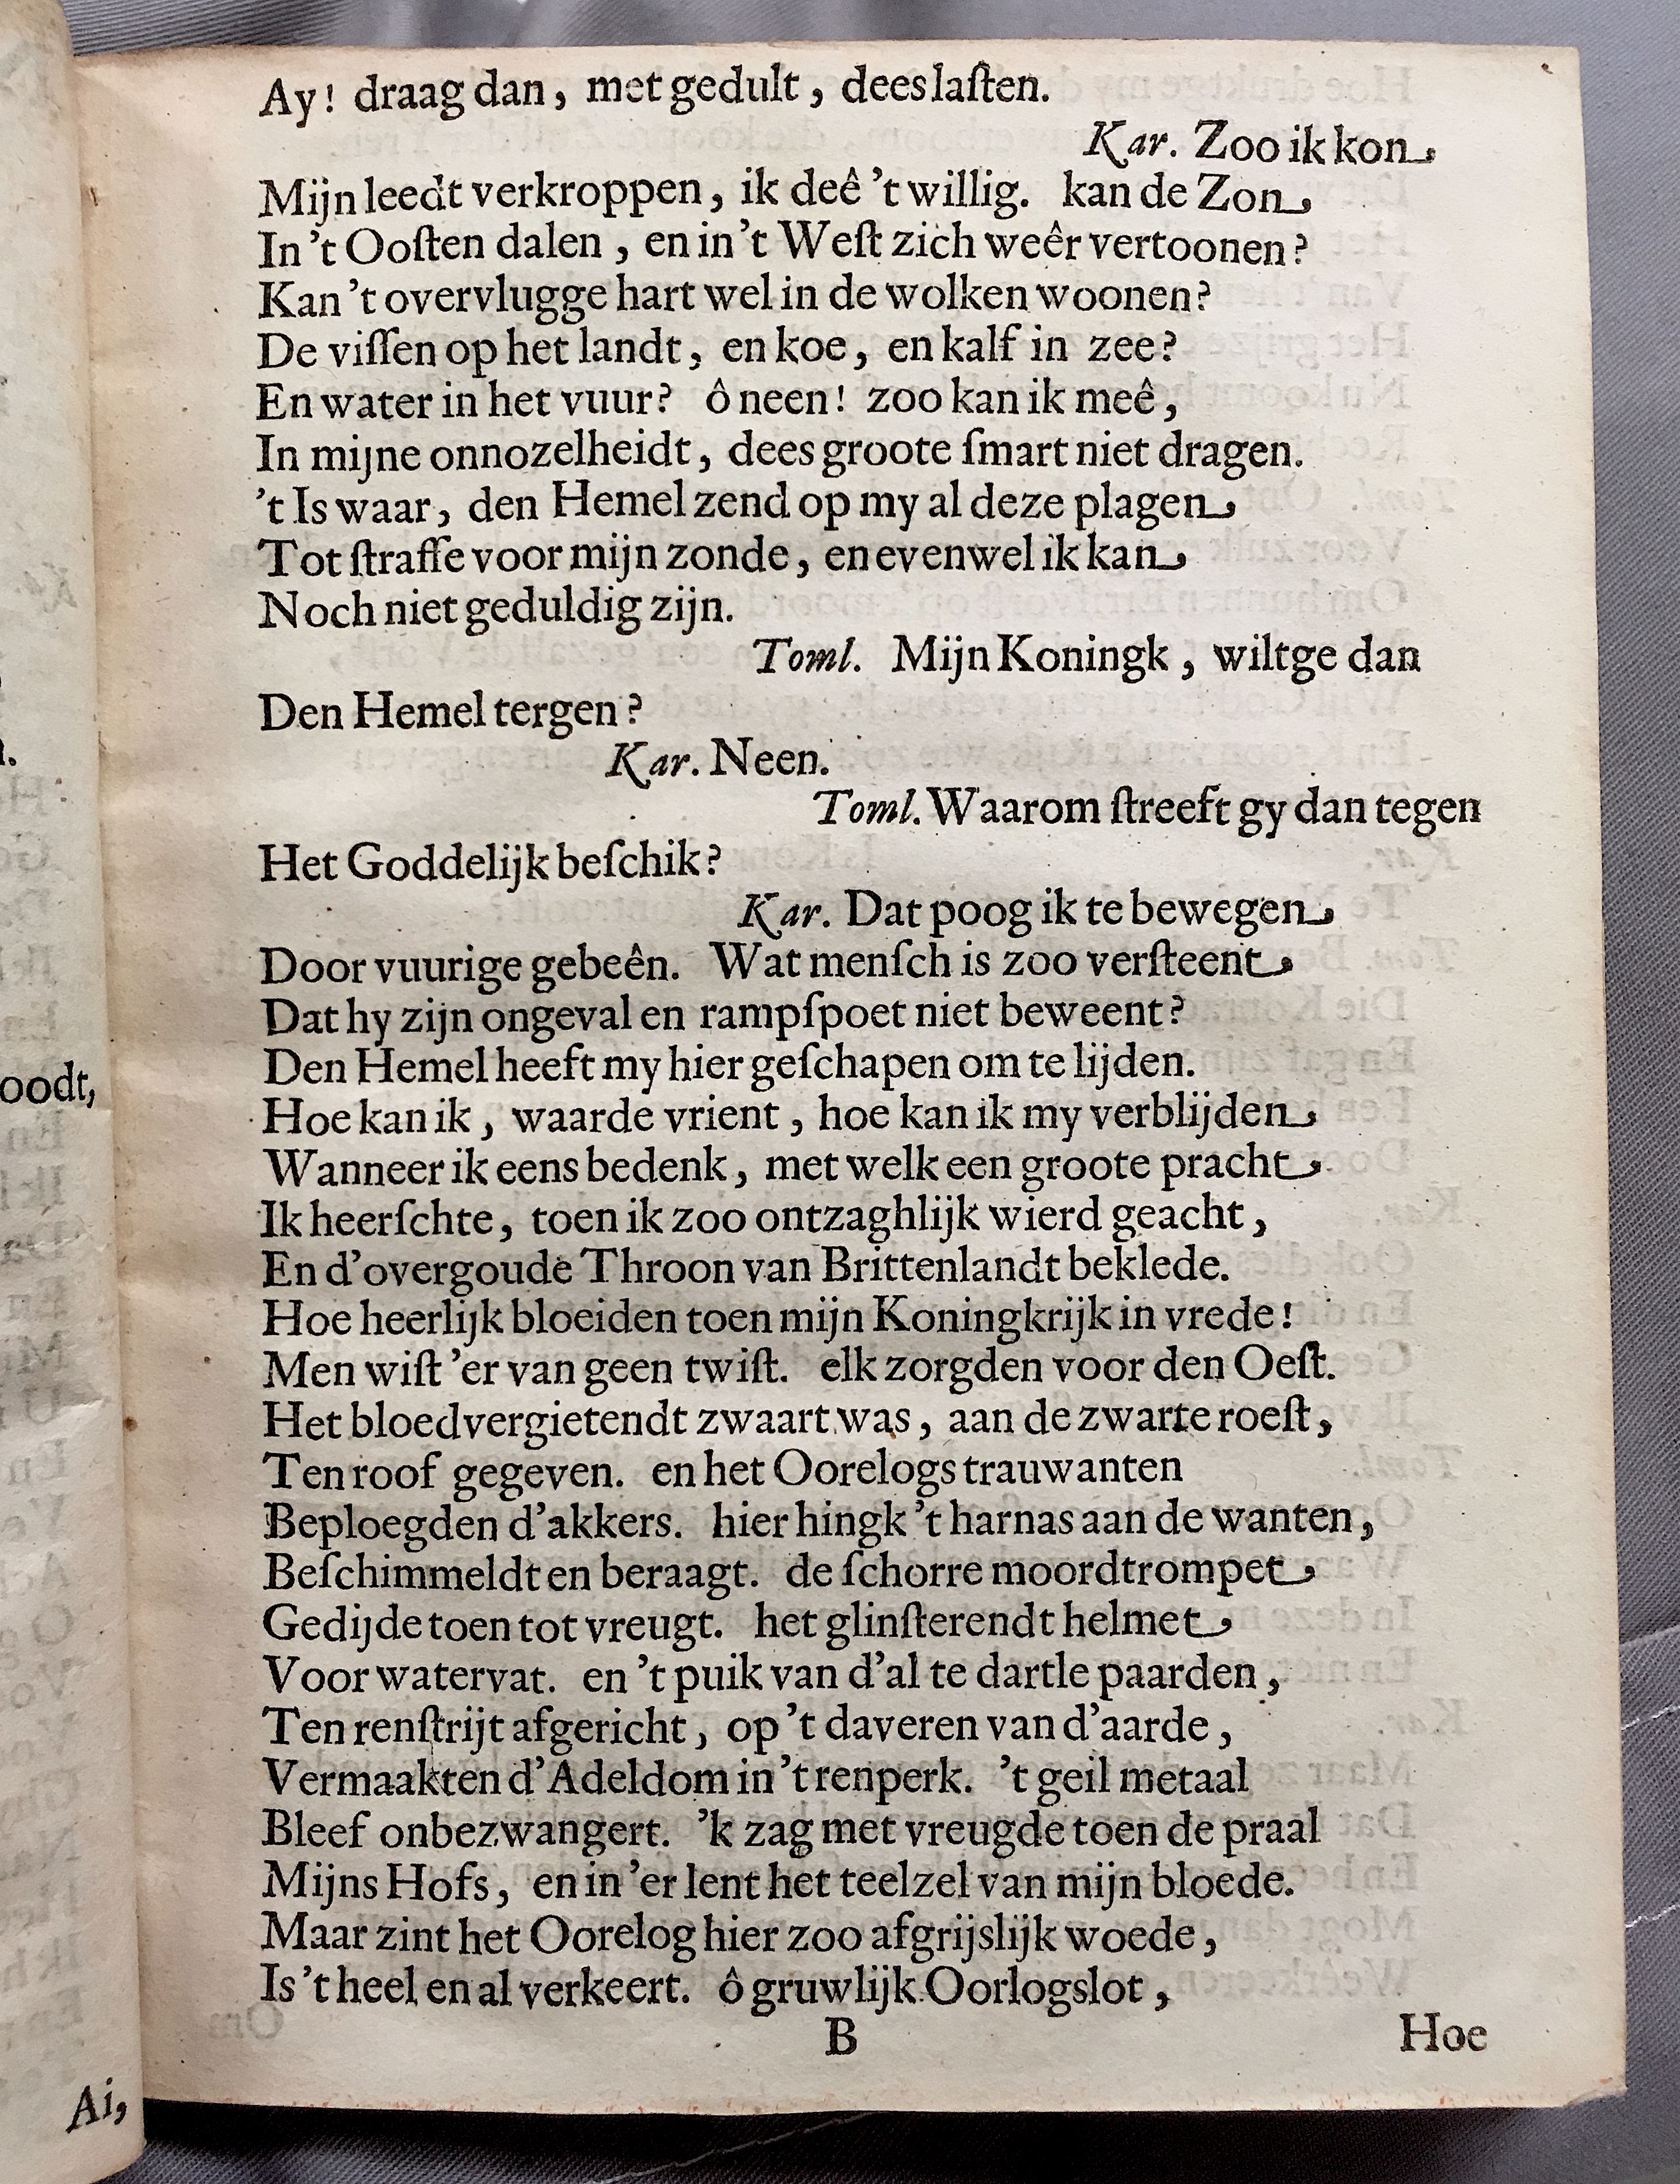 Ay! draag dan, met gedult, dees laſten.
Kar. Zoo ik kon
Mijn leedt verkroppen, ik deê 't willig. kan de Zon
In 't Ooſten dalen, en in 't Weſt zich weêr vertoonen?
Kan 't overvlugge hart wel in de wolken woonen?
De viſſen op het landt, en koe, en kalf in zee?
En water in het vuur? ô neen! zoo kan ik meê,
In mijne onnozelheidt, dees groote ſmart niet dragen.
't Is waar, den Hemel zend op my al deze plagen
Tot ſtraffe voor mijn zonde, en evenwel ik kan
Noch niet geduldig zijn.
Toml. Mijn Koningk, wiltge dan
Den Hemel tergen?
Kar. Neen.
Toml. Waarom ſtreeft gy dan tegen
Het Goddelijk beſchik?
Kar. Dat poog ik te bewegen
Door vuurige gebeên. Wat menſch is zoo verſteent
Dat hy zijn ongeval en rampſpoet niet beweent?
Den Hemel heeft my hier geſchapen om te lijden.
Hoe kan ik, waarde vrient, hoe kan ik my verblijden
Wanneer ik eens bedenk, met welk een groote pracht
Ik heerſchte, toen ik zoo ontzaghlijk wierd geacht,
En d'overgoude Throon van Brittenlandt beklede.
Hoe heerlijk bloeiden toen mijn Koningkrijk in vrede!
Men wiſt 'er van geen twiſt. elk zorgden voor den Oeſt.
Het bloedvergietendt zwaart was, aan de zwarte roeſt,
Ten roof gegeven. en het Oorelogs trauwanten
Beploegden d'akkers. hier hingk 't harnas aan de wanten,
Beſchimmeldt en beraagt. de ſchorre moordtrompet
Gedijde toen tot vreugt. het glinſterendt helmet
Voor watervat. en 't puik van d'al te dartle paarden,
Ten renſtrijt afgericht, op 't daveren van d'aarde,
Vermaakten d'Adeldom in 't renperk. 't geil metaal
Bleef onbezwangert. 'k zag met vreugde toen de praal
Mijns Hofs, en in 'er lent het teelzel van mijn bloede.
Maar zint het Oorelog hier zoo afgrijslijk woede,
Is 't heel en al verkeert. ô gruwlijk Oorlogslot,
B
Hoe
oodt,
Ai,